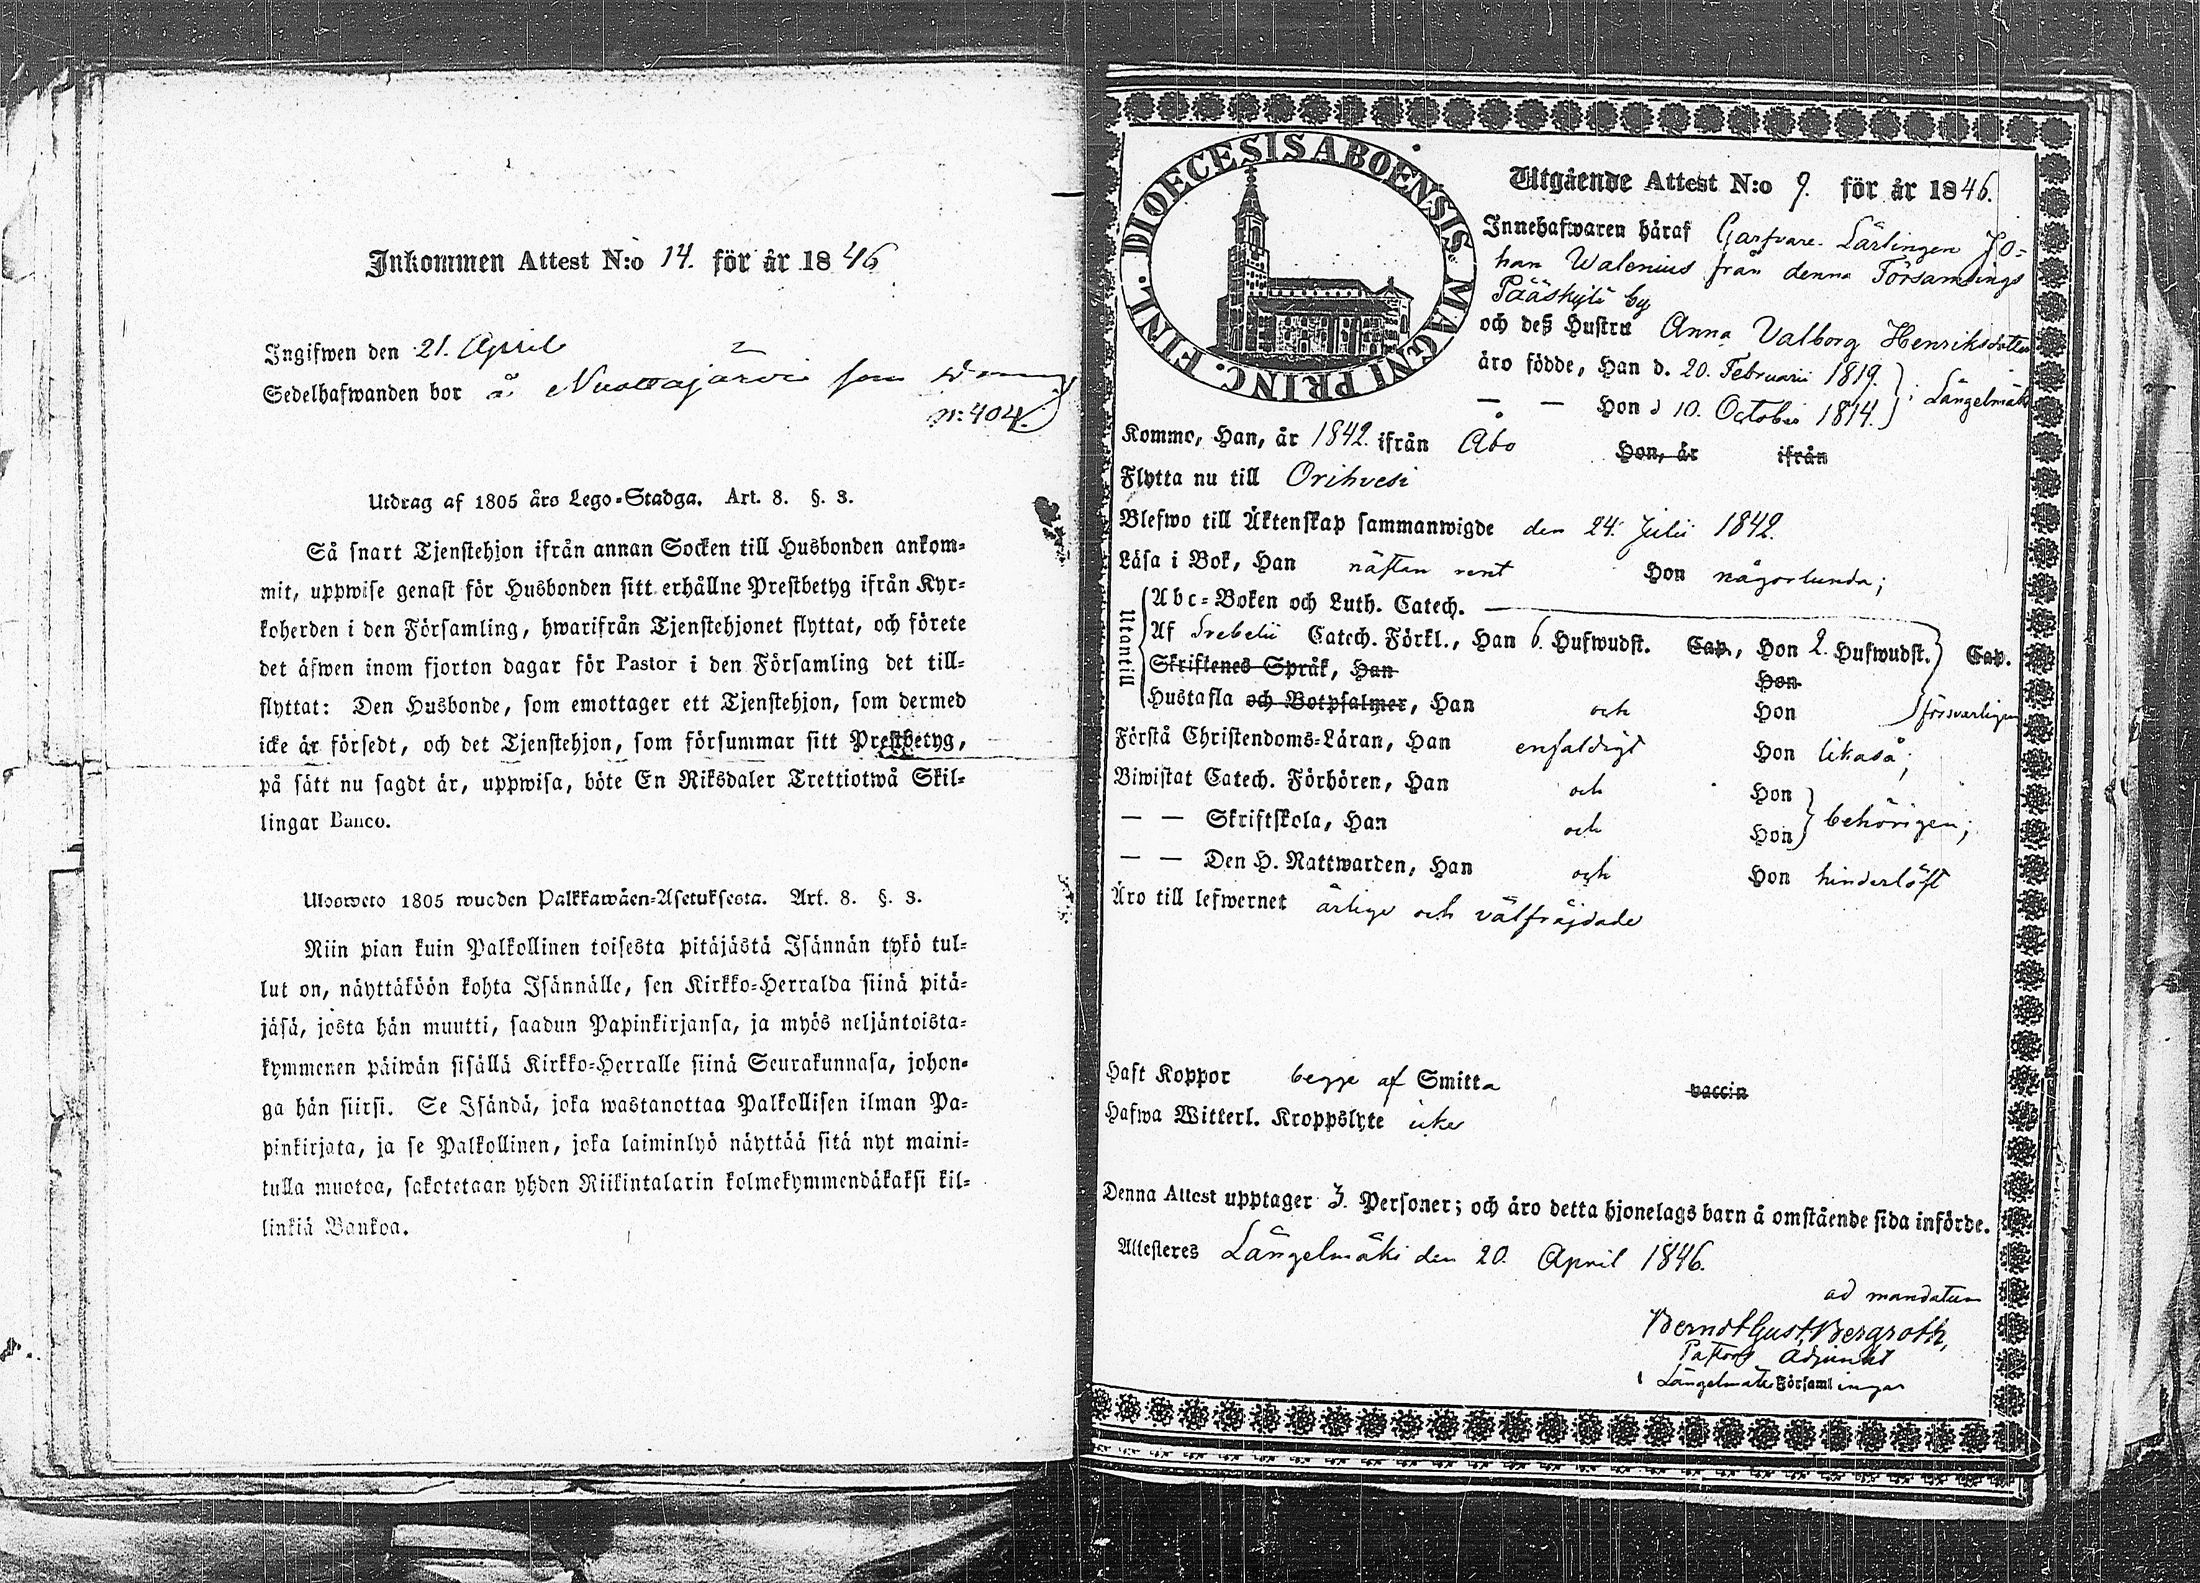 Inkommen Attest N:o 14. för år 1846
Ingifwen den 21. April
Sedelhafwanden bor å Nuottajärvi som
n:404.
Utdrag af 1805 års Lego-Stadga. Art. 8. §. 3.
Så snart Tjenstehjon ifrån annan Socken till Husbonden ankom-
mit, uppwise genast för Husbonden sitt erhållne Prestbetyg ifrån Kyr-
koherden i den Församling, hwarifrån Tjenstehjonet flyttat, och förete
det äfwen inom fjorton dagar för Pastor i den Församling det till-
flyttat: Den Husbonde, som emottager ett Tjenstehjon, som dermed
icke är försedt, och det Tjenstehjon, som försummar sitt Prestbetyg,
på sätt nu sagdt är, uppwisa, böte En Riksdaler Trettiotwå Skil-
lingar Banco.
Ulosweto 1805 wuoden Palkkawäen-Asetuksesta. Art. 8. §. 3.
Niin pian kuin Palkollinen toisesta pitäjästä Isännän tykö tul-
lut on, näyttäköön kohta Isännälle, sen Kirkko-Herralda siinä pitä-
jäsä, josta hän muutti, saadun Papinkirjansa, ja myös neljäntoista-
kymmenen päiwän sisällä Kirkko-Herralle siinä Seurakunnasa, johon-
ga hän siirsi. Se Isändä, joka wastanottaa Palkollisen ilman Pa-
pinkirjata, ja se Palkollinen, joka laiminlyö näyttää sitä nyt maini-
tulla muotoa, sakotetaan yhden Riikintalarin kolmekymmendäkaksi kil-
linkiä Bankoa.
DIOECESIS ABOENSIS. MAGNI PRINC. FINL.
Utgående Attest N:o 9. för år 1846.
Innehafwaren häraf Garfvare-Lärlingen Jo-
han Walenius från denna Församlings
Pääskylä by
och deß Hustru Anna Valborg Henriksdotter
äro födde, Han d. 20. Februarii 1819.
— — Hon d 10. Octobris 1814. i Längelmäki
Kommo, Han, år 1842. ifrån Åbo Hon, år ifrån
Flytta nu till Orihvesi
Blefwo till Äktenskap sammanwigde den 24. Julii 1842.
Läsa i Bok, Han nästan rent Hon någorlunda;
Utantill
Abc-Boken och Luth. Catech. —
Af Svebelii Catech. Förkl., Han 6. Hufwudst. Cap., Hon 2. Hufwudst. Cap.
Skriftenes Språk, Han Hon
Hustafla och Botpsalmer, Han och Hon försvarligen
Förstå Christendoms-Läran, Han enfaldigt Hon likaså;
Biwistat Catech. Förhören, Han och Hon
— — Skriftskola, Han och Hon behörigen;
— — Den H. Nattwarden, Han och Hon hinderlöst
Äro till lefwernet ärlige och välfräjdade
Haft Koppor begge af Smitta vaccin
Hafwa Witterl. Kroppslyte icke
Denna Attest upptager 3. Personer; och äro detta hjonelags barn å omstående sida införde.
Attesteres Längelmäki den 20. April 1846.
ad mandatum
Berndt Gust. Bergroth,
Pastors Adjunkt
i Längelmäki Församlingar